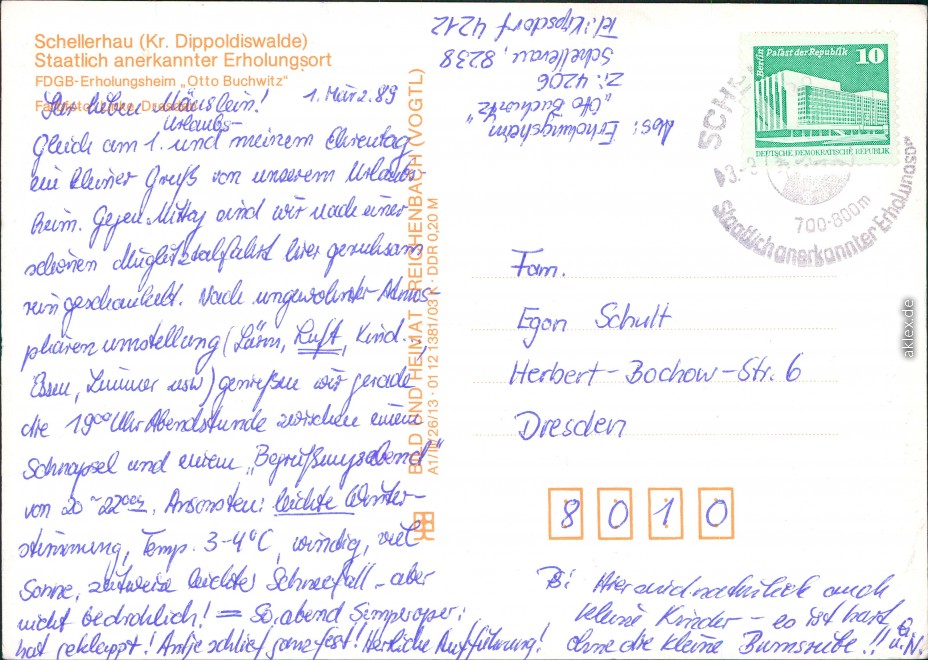 Schellerhau (Kr. Dippoldiswalde)
Staatlich anerkannter Erholungsort
FDGB-Erholungsheim „Otto Buchwitz"
Ihr lieben Häuslein! 1. März 89
Gleich am 1. Urlaubs- und meinem Ehrentag
ein kleiner Gruß von unserem Urlaubs-
heim. Gegen Mittag sind wir nach einer
schönen Müglitztalfahrt hier geruhsam
reingeschaukelt. Nach ungewohnter Atmos-
phärenumstellung (Lärm, Luft, Kind.,
Essen, Zimmer usw) genießen wir gerade
die 19⁰⁰ Uhr Abendstunde zwischen einem
Schnapsel und einem „Begrüßungsabend"
von 20 - 22⁰⁰. Ansonsten: leichte Winter-
stimmung, Temp. 3-4°C, windig, viel
Sonne, zeitweise leichter Schneefall - aber
nicht bedrohlich! = So, abend Semperoper:
hat geklappt! Antje schlief ganz fest! Herrliche Aufführung!
BILD UND HEIMAT REICHENBACH (VOGTL)
A1/III/26/13 · 01 12 1381/03 K · DDR 0,20 M
Abs: Erholungsheim
„Otto Buchwitz"
Zi: 4206
Schellerau, 8238
tel: Kipsdorf 4212
Berlin, Palast der Republik
10
DEUTSCHE DEMOKRATISCHE REPUBLIK
SCHE
700-800m
Staatlich anerkannter Erholungsort
Fam.
Egon Schult
Herbert-Bochow-Str. 6
Dresden
8 0 1 0
Hier sind natürlich auch
kleine Kinder - es ist hart,
ohne die kleine Bumsrübe!!
aklex.de